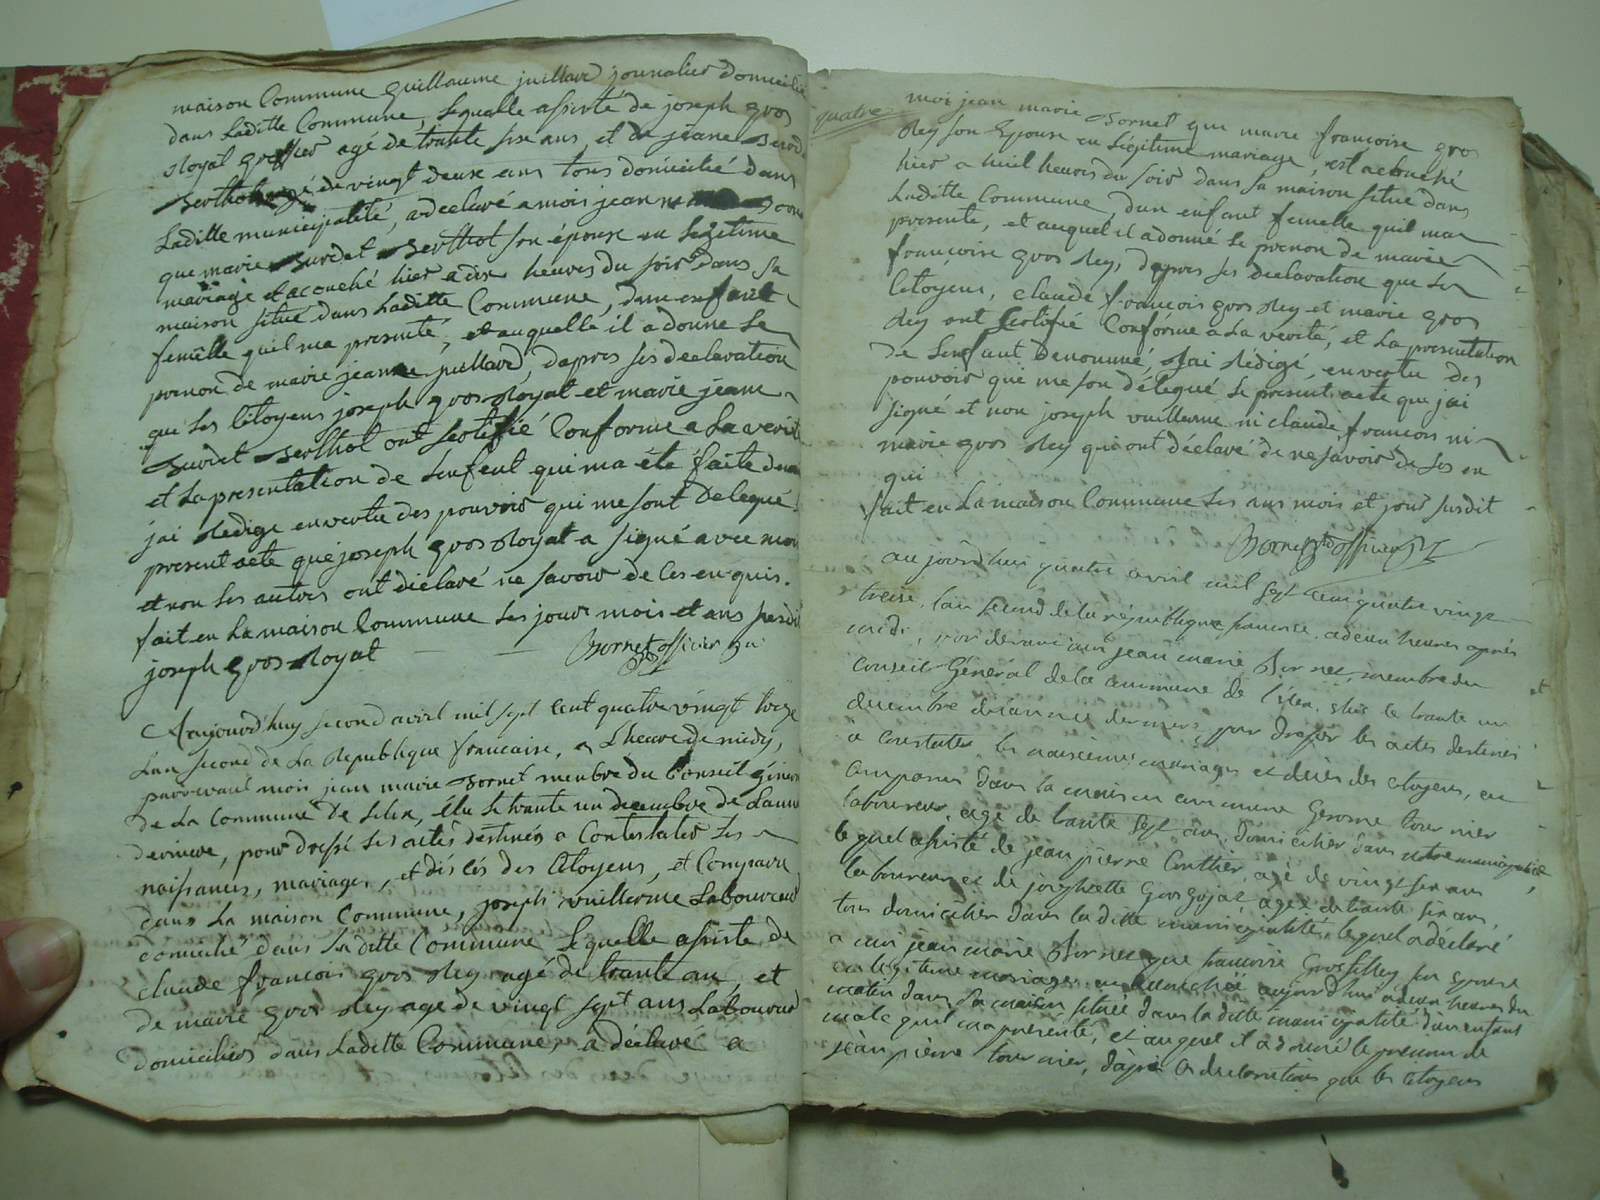 maison Commune guillaume juillard journalier domicilié
dans Laditte Commune, Lequelle assisté de joseph gros
Royal greffier agé de trante six ans, et de jeane Burdet
Berthot agé de vingt deux ans tous domicilié dans
Laditte municipalité, a declaré a mois jean
que marie Burdet Berthot son épouse en Legitime
mariage et acouché hier a dix heures du soir dans sa
maison situé dans Laditte Commune, dun enfant
femelle quil ma presenté, et auquelle il a donne Le
prenon de marie jeanne juillard, dapres ses declaration
que Les Citoyens joseph gros Royal et marie jeane
Burdet Berthot ont sertifié Conforme a La verité
et La presentation de Lenfent qui ma été faite
jai Redige en vertu des pouvoir qui me sont Delequé
present acte que joseph gros Royal a signé avec moi
et non Les autres ont déclaré ne savoir de Ces en quis.
fait en La maison Commune Les jour mois et ans susdit
joseph gros Royal Bornet officier
Aujourd'huy second avril mil sept Cent quatre vingt treze
Lan second de La Republique francaise, a Lheure de midy,
pardevant mois jean marie Bornet menbre du Conseil géneral
de La Commune de Lelex, élu Le trante un decembre de Lanné
derniere, pour dressé Les actes destinés a Contestater Les
naissances, mariages, et décés des Citoyens, et Comparu
dans La maison Commune, joseph vuillerme Laboureur
domicilié dans Laditte Commune Lequelle assisté de
claude françois gros Rey agé de trante an, et
de marie gros Rey age de vingt sept ans Laboureur
domiciliés dans Laditte Commune, a déclaré a
quatre
moi jean marie Bornet que marie françoise gros
Rey son Epouse en Légitime mariage, est acouché
hier a huit heures du soir dans sa maison situé dans
Laditte Commune, dun enfant femelle quil ma
presenté, et auquel il a donné Le prenon de marie
françoise gros Rey, dapres ses declaration que Les
Citoyens, claude françois gros Rey et marie gros
Rey ont sertifié Conforme a La verité, et La presentation
de Lenfant, Denommé, Jai Rédigé, en vertu des
pouvoir qui me son délequé Le present acte que jai
signé et non joseph vuillerme ni claude françois ni
marie gros Rey qui ont déclaré de ne savoir de Ces en
qui
fait en La maison Commune Les ans mois et jour susdit
Bornet officier
au jourdhui quatre avril mil sept Cent quatre vingt
treise, lan second de la république francaise, a deux heures aprés
midi, par devant moi jean marie Bornet, membre du
Conseil Général de la commune de lélex, élus le trante un
decembre dernier, pour dresser les actes destinés
à Constater les naissances mariages et décès des citoyens, en
Comparus dans la maison commune Gerome tournier
laboureur, agé de trante sept ans, domicilier dans notre municipalité,
lequel assisté de jean pierre Coutier, agé de vingt six ans
laboureur et de Gros Gojat, agée de trante six ans,
tous domicilier dans la ditte municipalité, lequel a déclaré
a moi jean marie Bornet que francoise Grosfilley son epouse
en legitime mariage, aujourd'hui a deux heures du
matin dans sa maison située dans la ditte municipalité d'un enfant
male quil ma presenté, et auquel il a donné le prenom de
jean pierre tournier, d'après les declarations que les Citoyens